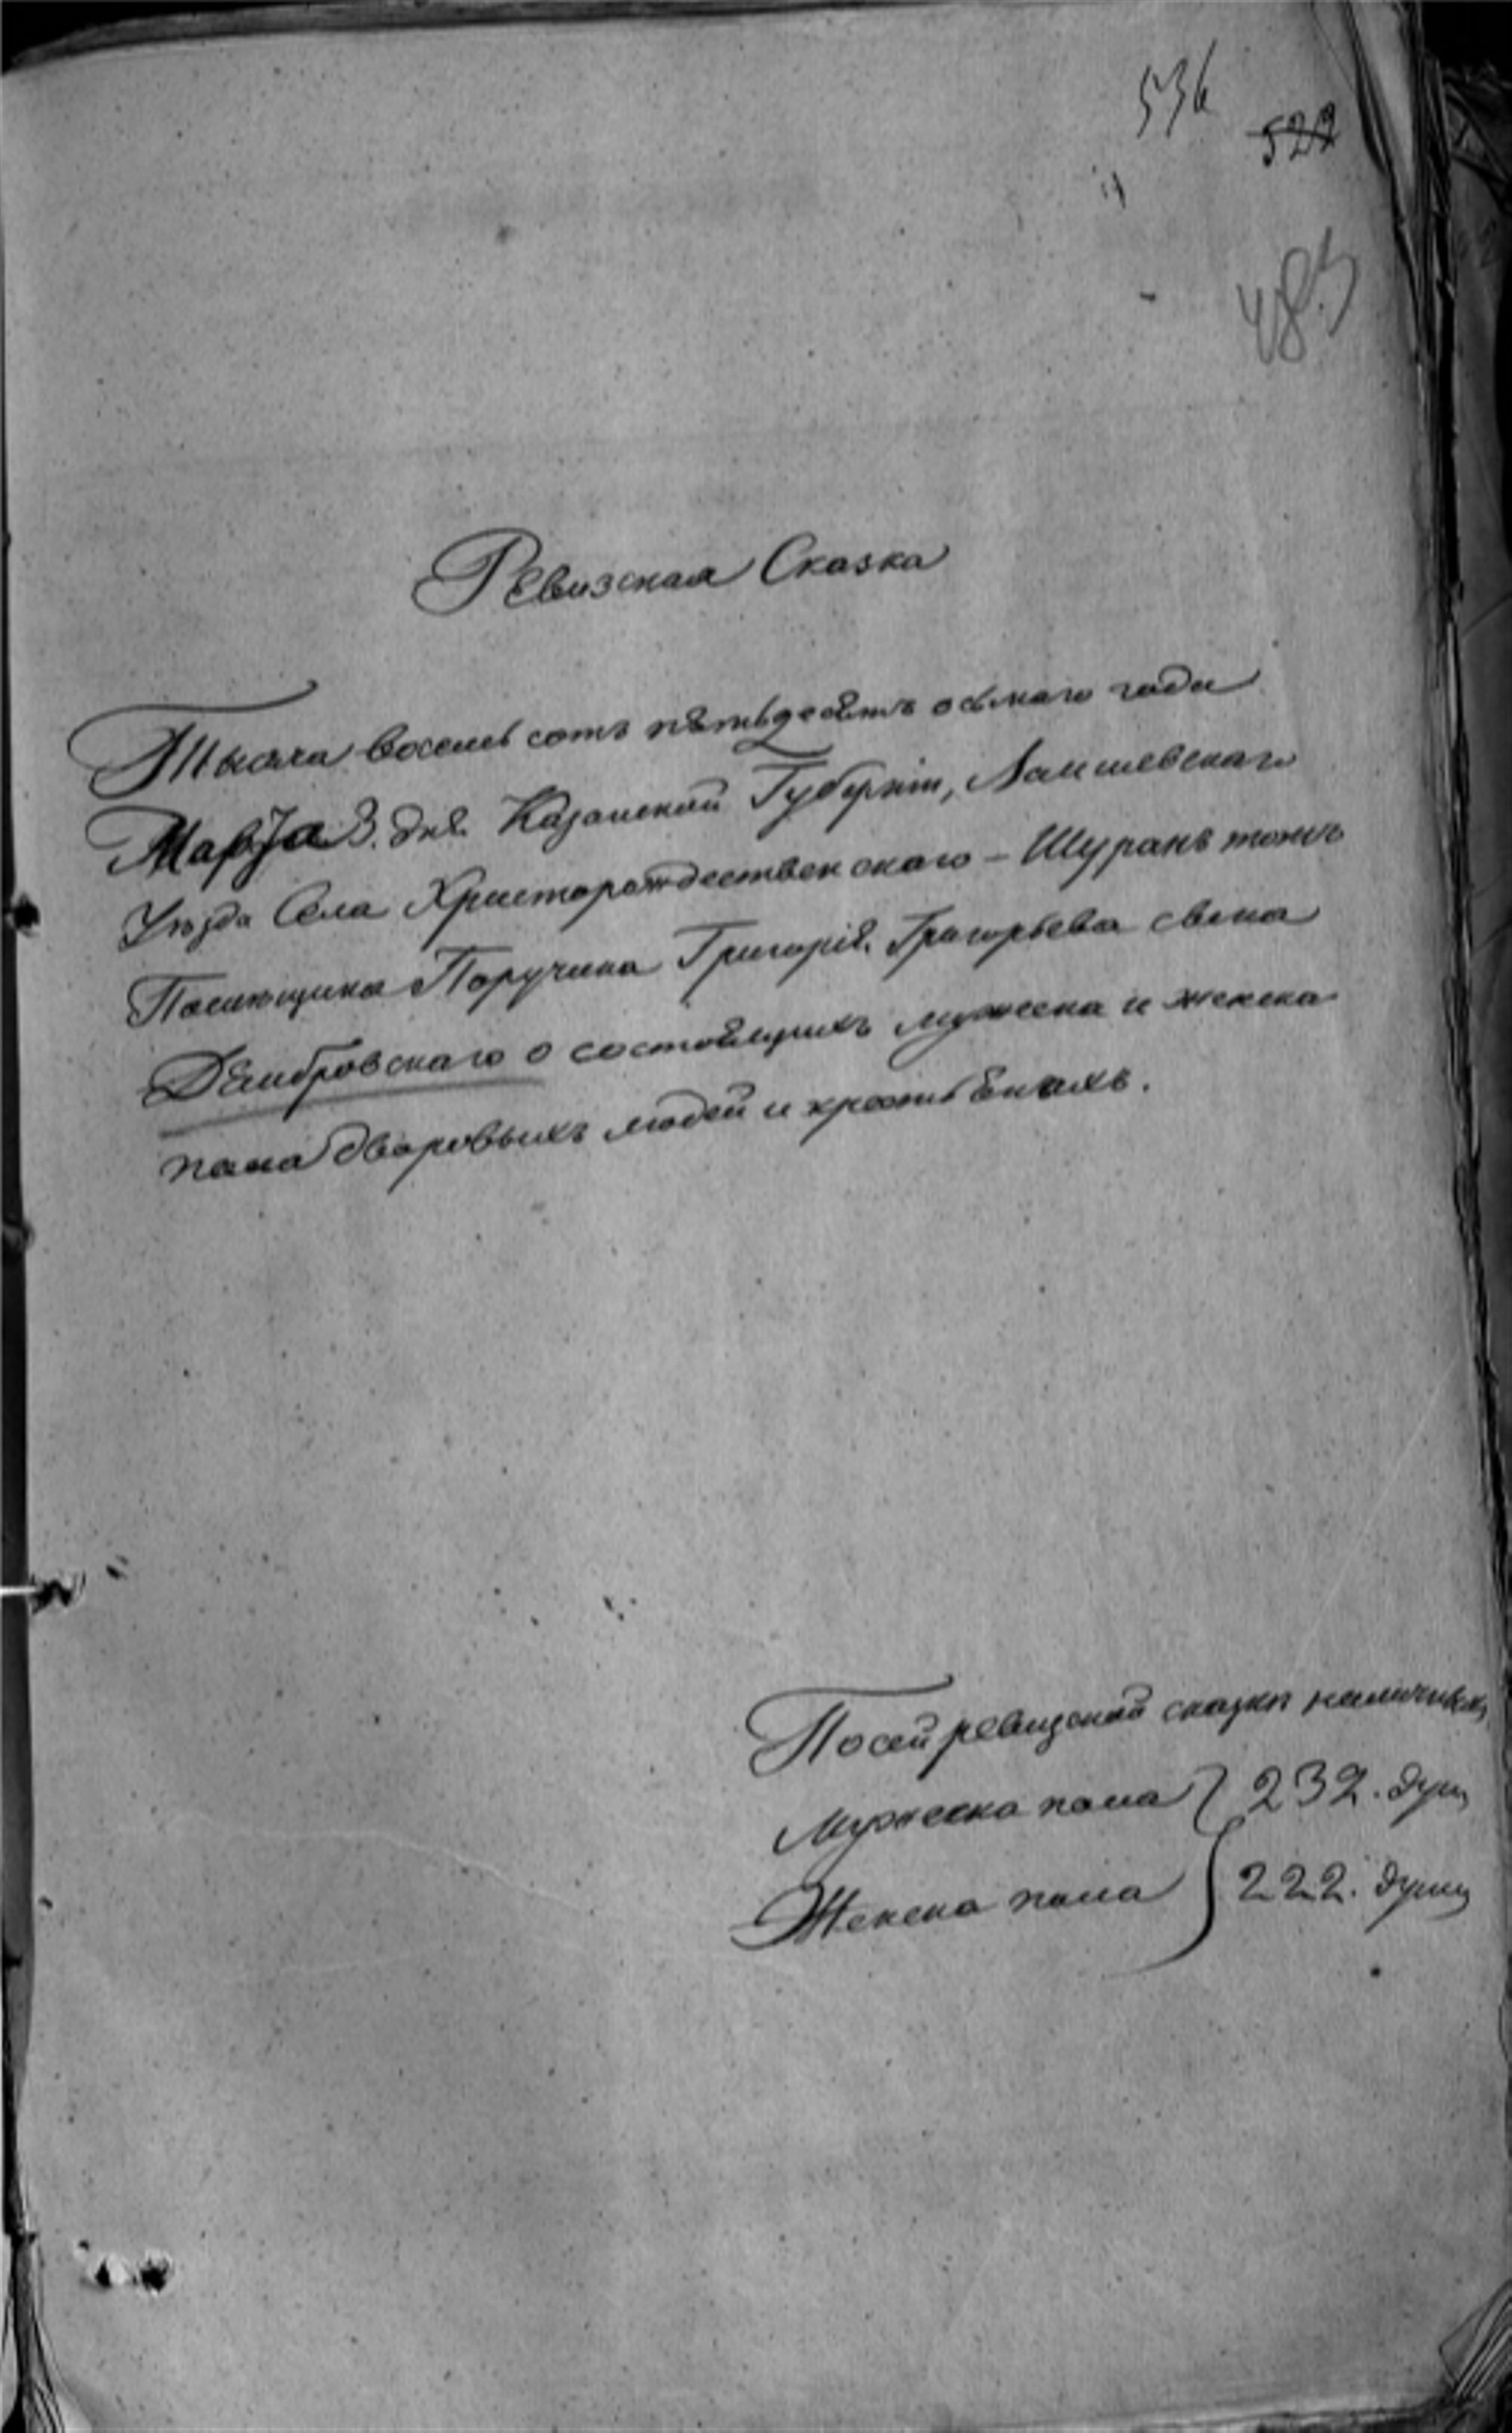 536
522
483
Ревизская Сказка
Тысяча восемь сотъ пятьдесятъ осьмаго года
Марта 3. дня Казанской Губернiи, Лаишевскаго
Уѣзда Села Христорождественскаго – Шуранъ тожъ
Помѣщика Поручика Григорiя Григорьева сына
Дембровскаго о состоящихъ мужеска и женска
пола дворовыхъ людей и крестьянахъ.
По сей ревизской сказкѣ наличныхъ
Мужеска пола } 232. душ
Женска пола } 222. душ